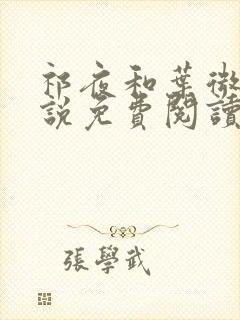 祁夜和葉微
說免費閱讀
張學武